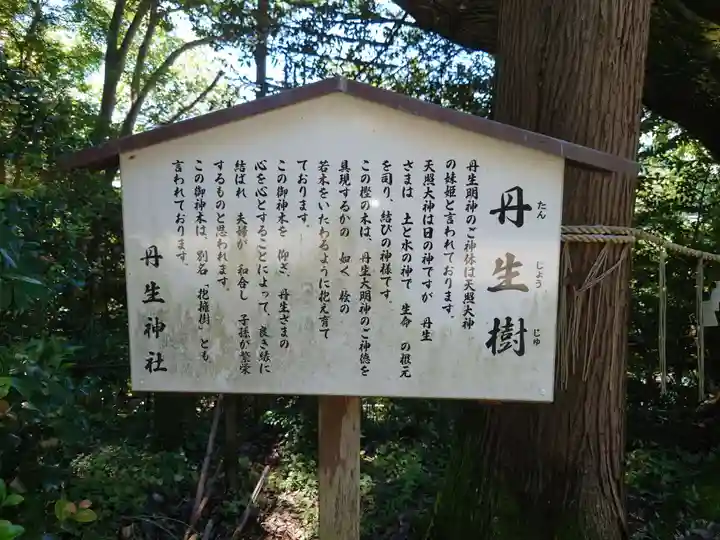 丹生樹
たん じょう じゅ
丹生明神のご神体は天照大神
の妹姫と言われております。
天照大神は日の神ですが 丹生
さまは 土と水の神で 生命 の根元
を司り、結びの神様です。
この樫の木は、丹生大明神のご神徳を
具現するかの 如く 桧の
若木をいたわるように抱え育て
ております。
この御神木を 仰ぎ、丹生さまの
心を心とすることによって、良き縁に
結ばれ 夫婦が 和合し 子孫が繁栄
するものと思われます。
この御神木は、別名「抱擁樹」とも
言われております。
丹生神社